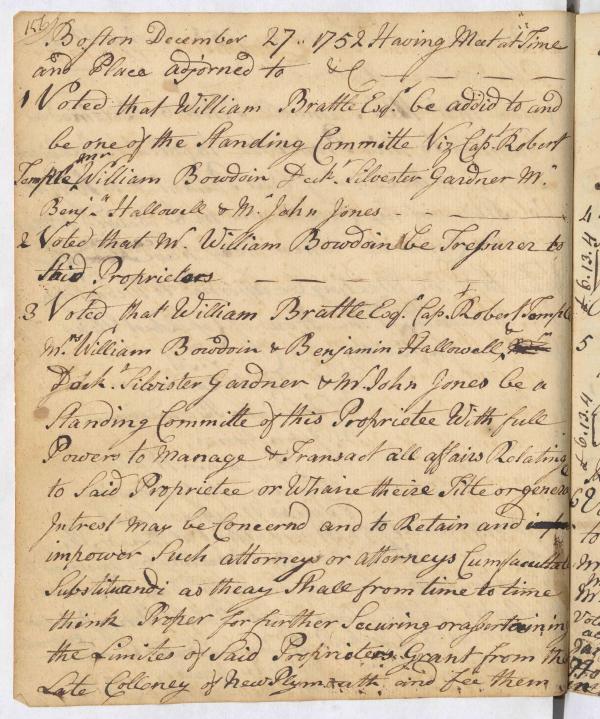 156
Boston December 27.. 1752 Having Meet at Time
and Place adjorned to &C
1 Voted that William Brattle Esqr. be addid to and
be one of the Standing Committe Viz Capt. Robert
Temple Mr William Bowdoin Dock.r Silvester Gardner Mr.
Benjn. Hallowell & Mr John Jones
2 Voted that Mr. William Bowdoin be Tresurer to
Said Proprietors
3 Voted that William Brattle Esqr. Capt. Robert Temple
Mrs. William Bowdoin & Benjamin Hallowell &
Dock.r Silvister Gardner & Mr. John Jones be a
Standing Committe of this Proprietee With full
Powers to Manage & Transact all affairs Relating
to Said Proprietee or Whaire theire Title or general
Intrest may be Concernd and to Retain and
impower Such attorneys or attorneys Cum facultate
Substituendi as theay Shall from time to time
think Proper for further Securing or assertaining
the Limites of Said Proprietors Grant from the
Late Colloney of New Plymouth and fee them
4
£ 6.13.4
5
£ 6.13.4
6
to
Mr
Mr.
Vote